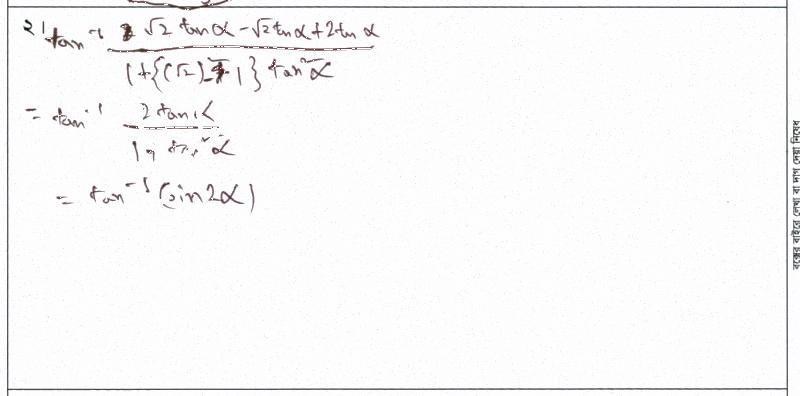 ২। tan⁻¹ (√2 tanα - √2 tanα + 2tan α) / (1+{(√2)² - 1} tan²α)
= tan⁻¹ (2 tan α) / (1+ tan² α)
= tan⁻¹ (sin2α)
বক্সের বাইরে লেখা বা দাগ দেয়া নিষেধ